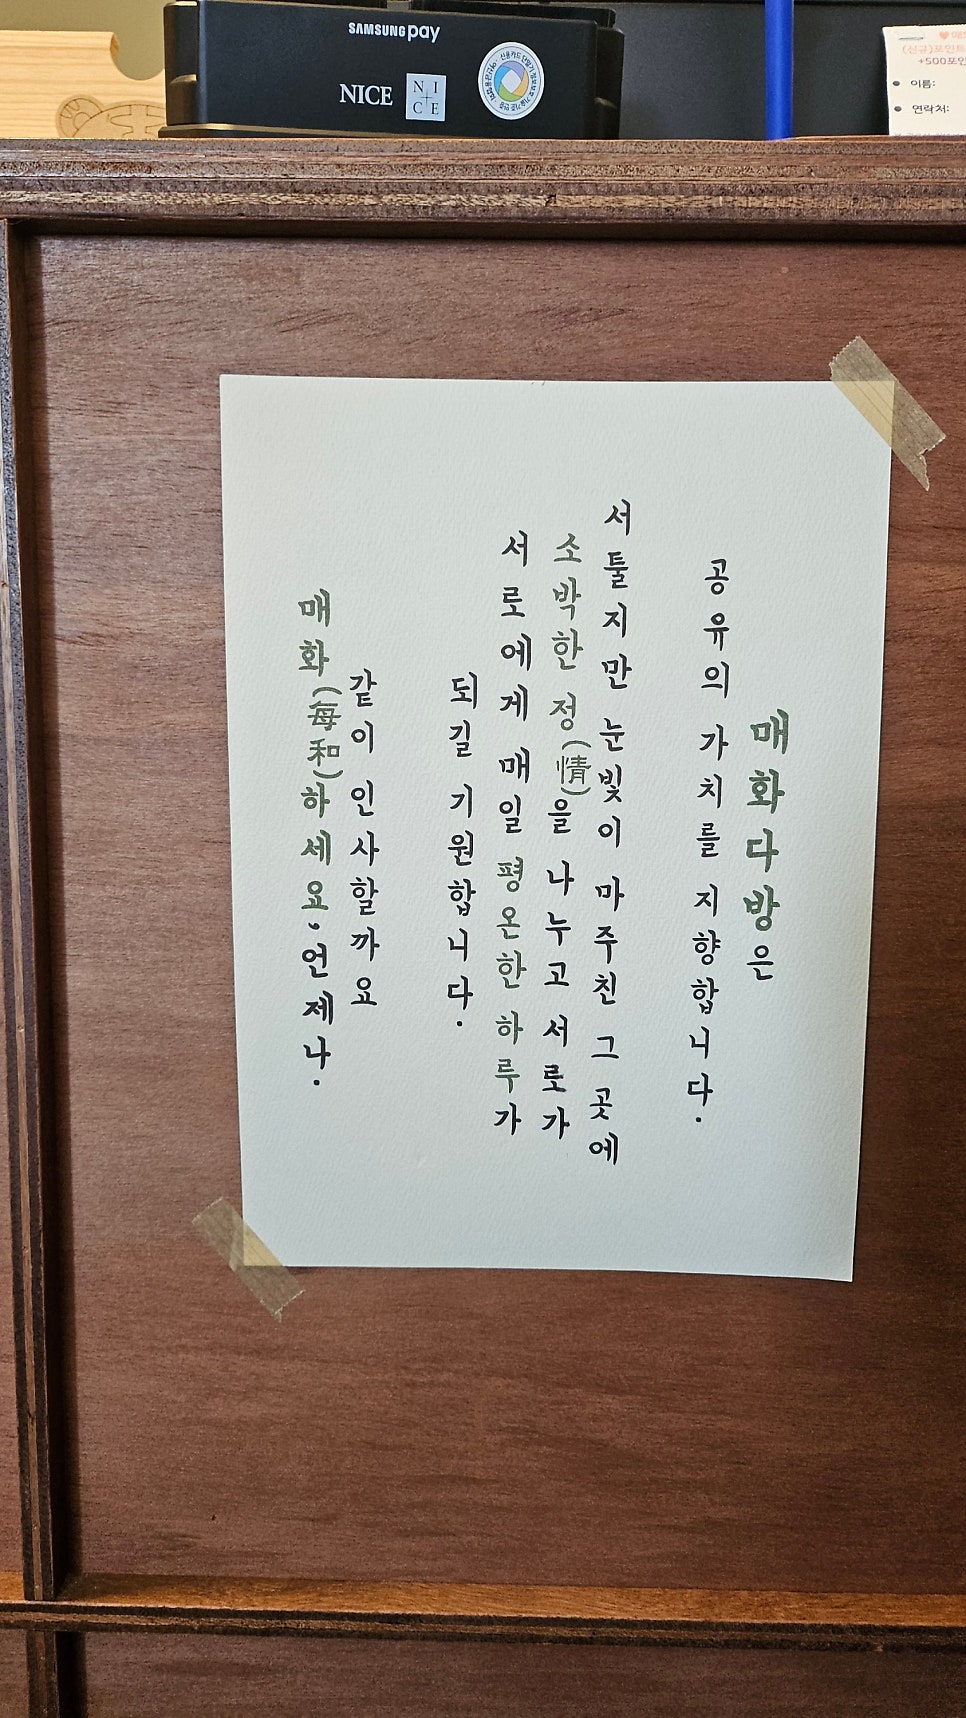 SAMSUNG pay
NICE
NI
CE
(신규)포인트
+500포인
• 이름:
• 연락처:
매화다방은
공유의 가치를 지향합니다.
서툴지만 눈빛이 마주친 그 곳에
소박한 정(情)을 나누고 서로가
서로에게 매일 평온한 하루가
되길 기원합니다.
같이 인사할까요
매화(每和)하세요. 언제나.